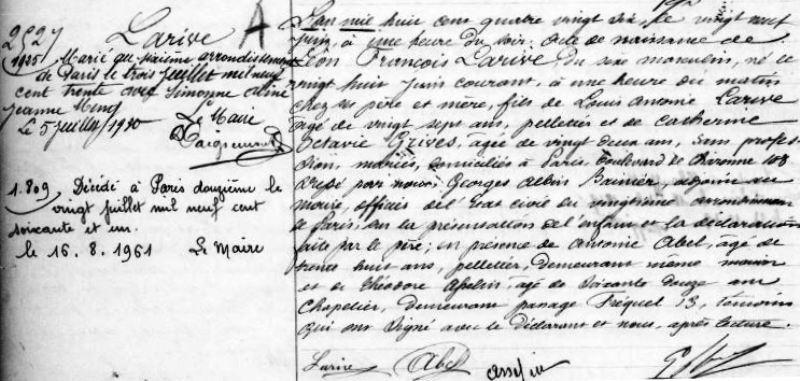 2527
Larive
A
1935
Marié au sixième arrondissement
de Paris le trois juillet mil neuf
cent trente avec Simonne Aline
Jeanne
Le 5 juillet 1930 Le Maire
1.809 Décédé à Paris douzième le
vingt juillet mil neuf cent
soixante et un.
le 16.8.1961 Le Maire
L'an mil huit cent quatre vingt six, le vingt neuf
juin, à une heure du soir. Acte de naissance de
Léon François Larive du sexe masculin, né le
vingt huit Juin courant, à une heure du matin
chez ses père et mère, fils de Louis Antoine Larive
âgé de vingt sept ans, pelletier et de Catherine
Octavie Grives, âgée de vingt deux ans, sans profes-
sion, mariés, domiciliés à Paris, boulevard de Charonne 108
dressé par nous, Georges Albin adjoint au
maire, officier de l'Etat civil du vingtième arrondissement
de Paris, sur la présentation de l'enfant et la déclaration
faite par le père; en présence de Antoine Abel, âgé de
trente huit ans, pelletier, demeurant même maison
et de Théodore âgé de soixante douze ans
Chapelier, demeurant passage Fréquel 13, témoins
qui ont signé avec le déclarant et nous, après lecture.
Larive Abel